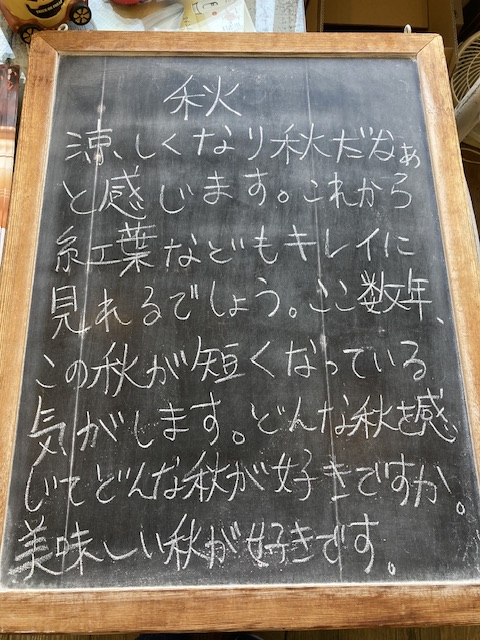 秋
涼しくなり秋だなぁ
と感じます。これから
紅葉などもキレイに
見れるでしょう。ここ数年、
この秋が短くなっている
気がします。どんな秋を感
じてどんな秋が好きですか。
美味しい秋が好きです。